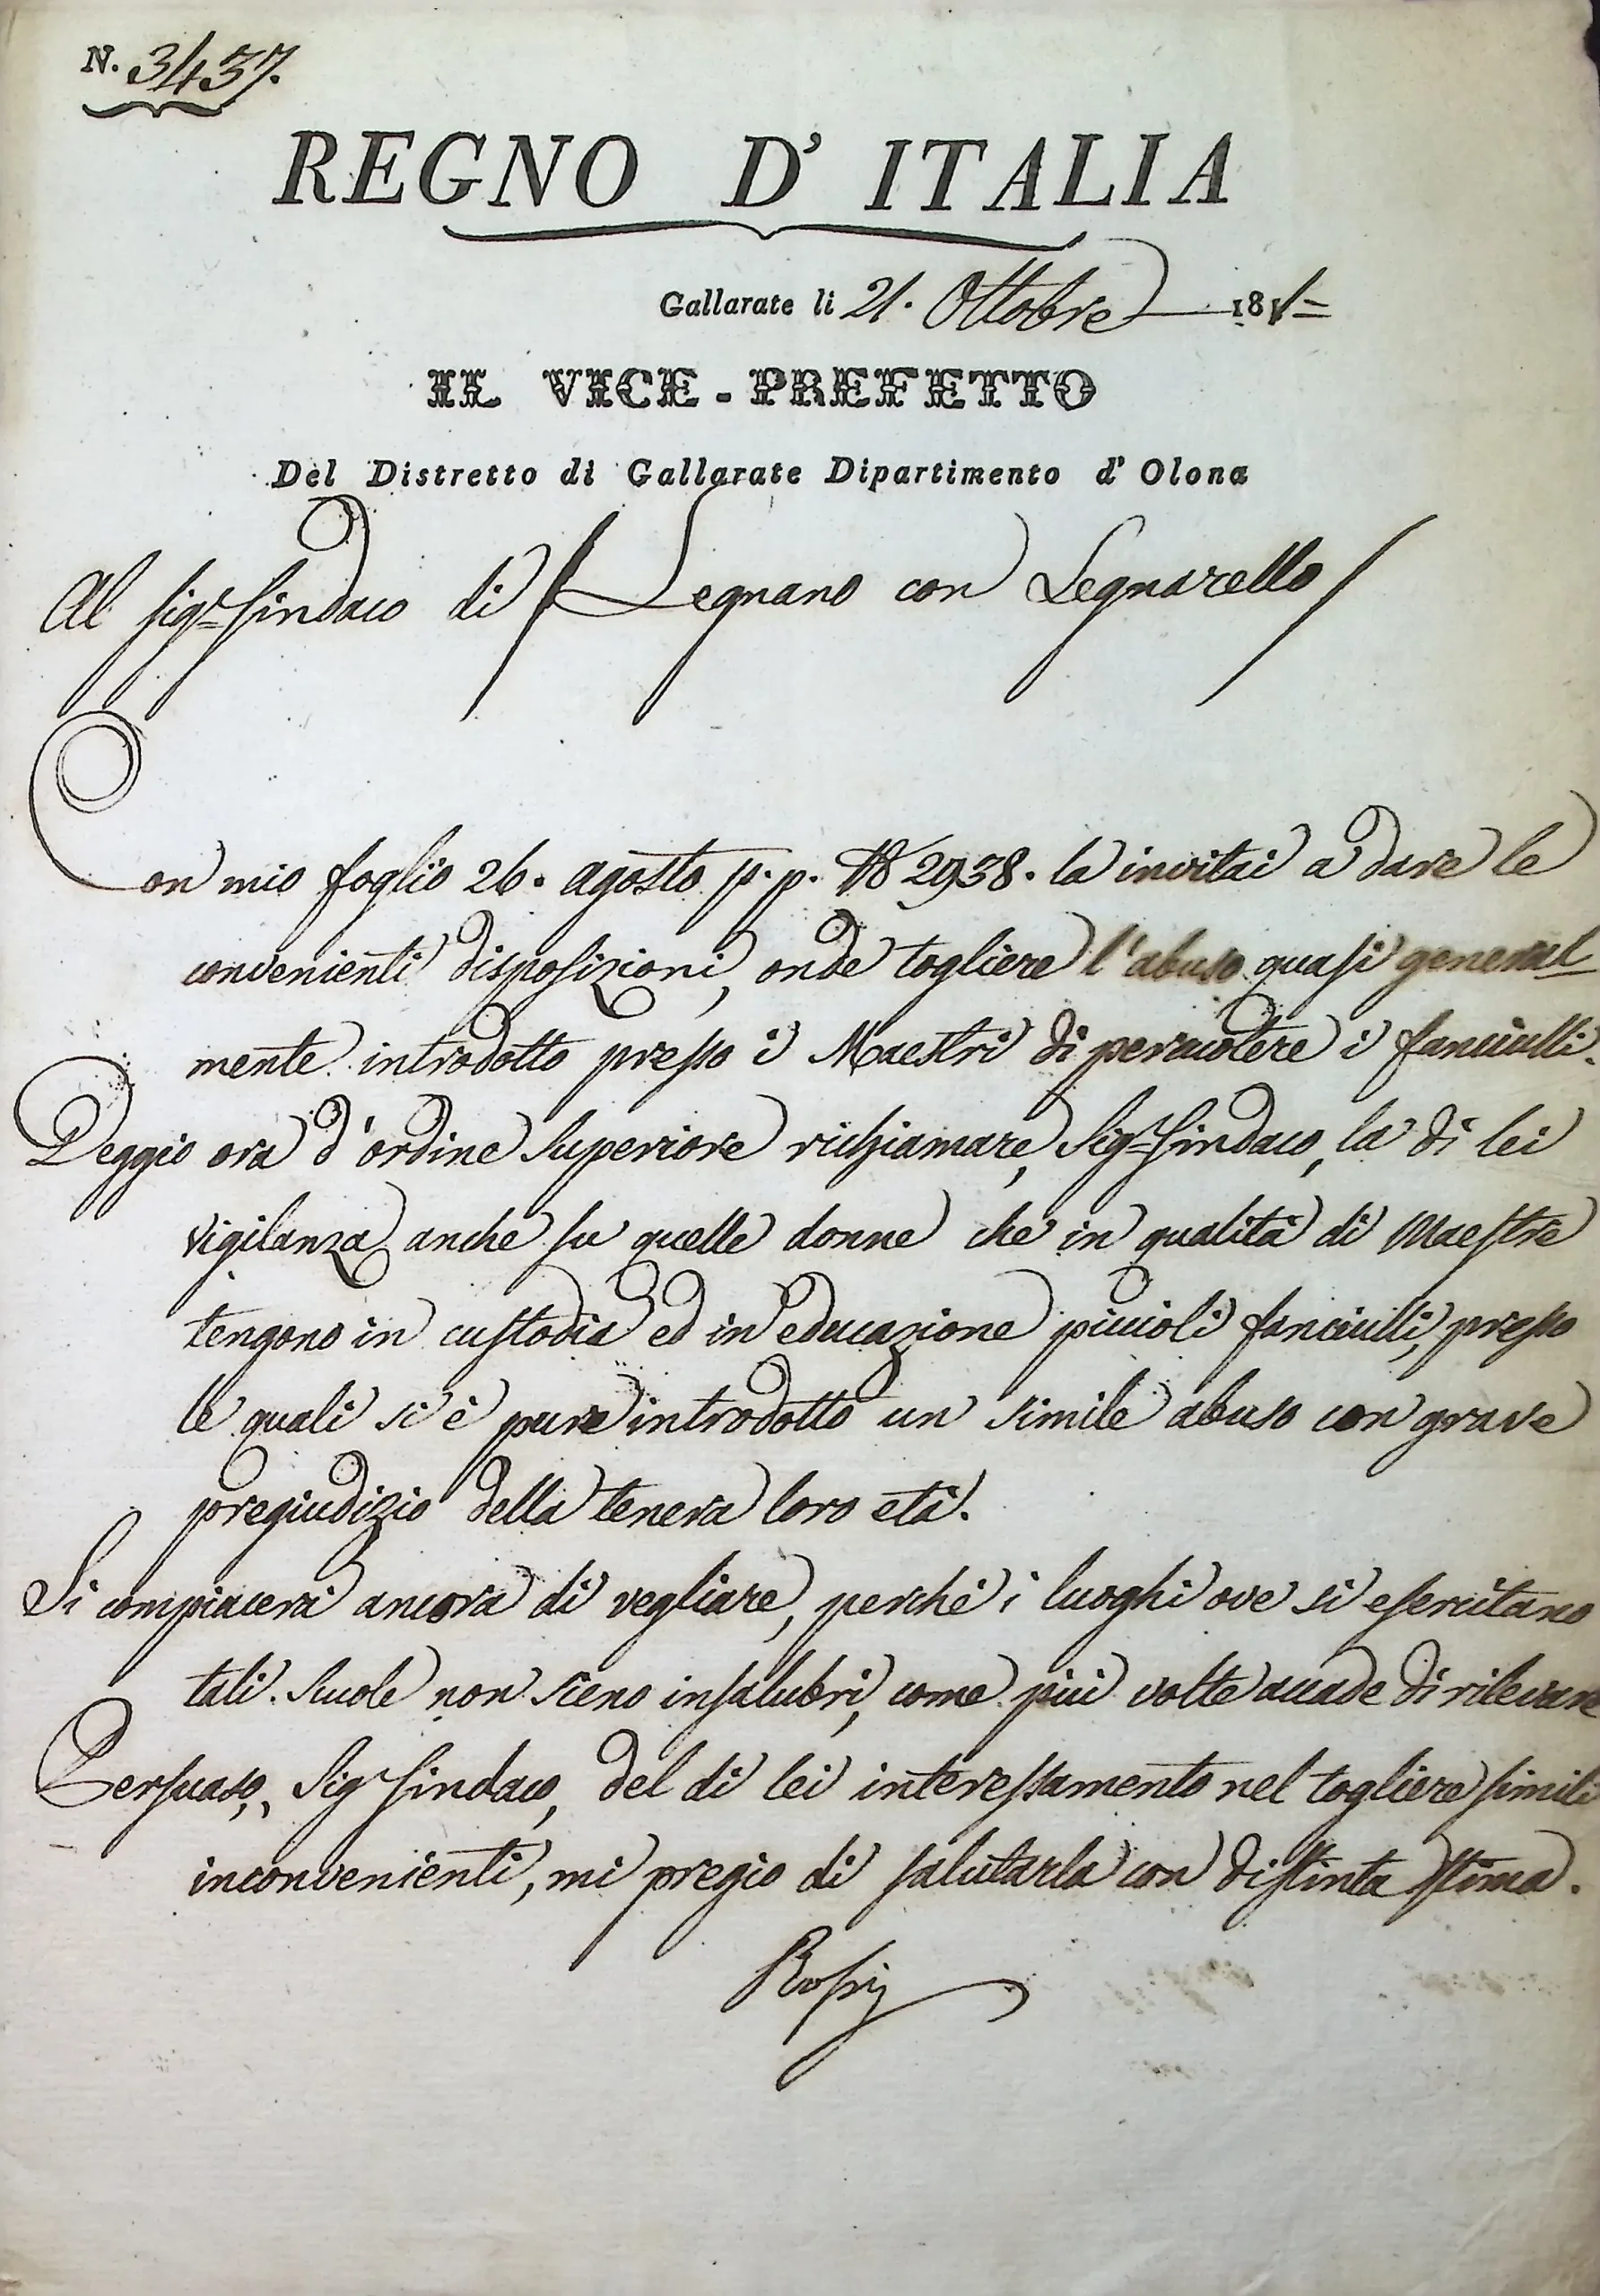 N. 3437.
REGNO D' ITALIA
Gallarate li 21. Ottobre 1811
IL VICE-PREFETTO
Del Distretto di Gallarate Dipartimento d' Olona
Al Sigr. Sindaco di Legnano con Legnarello
Con mio foglio 26. agosto p.p. N 2938. la invitai a dare le
convenienti disposizioni, onde togliere l'abuso quasi general
mente introdotto presso i Maestri di percuotere i fanciulli.
Deggio ora d'ordine superiore richiamare, Sigr. Sindaco, la di lei
vigilanza anche su quelle donne che in qualità di Maestre
tengono in custodia ed in educazione piccioli fanciulli, presso
le quali si è pure introdotto un simile abuso con grave
pregiudizio della tenera loro età.
Si compiacerà ancora di vegliare, perché i luoghi ove si esercitano
tali scuole non sieno insalubri, come più volte accade di rilevare
Persuaso, Sigr Sindaco, del di lei interessamento nel togliere simili
inconvenienti, mi pregio di salutarla con distinta stima.
Rossi